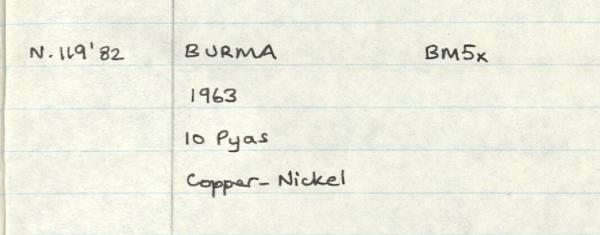 N.119'82 BURMA BM5x
1963
10 Pyas
Copper-Nickel